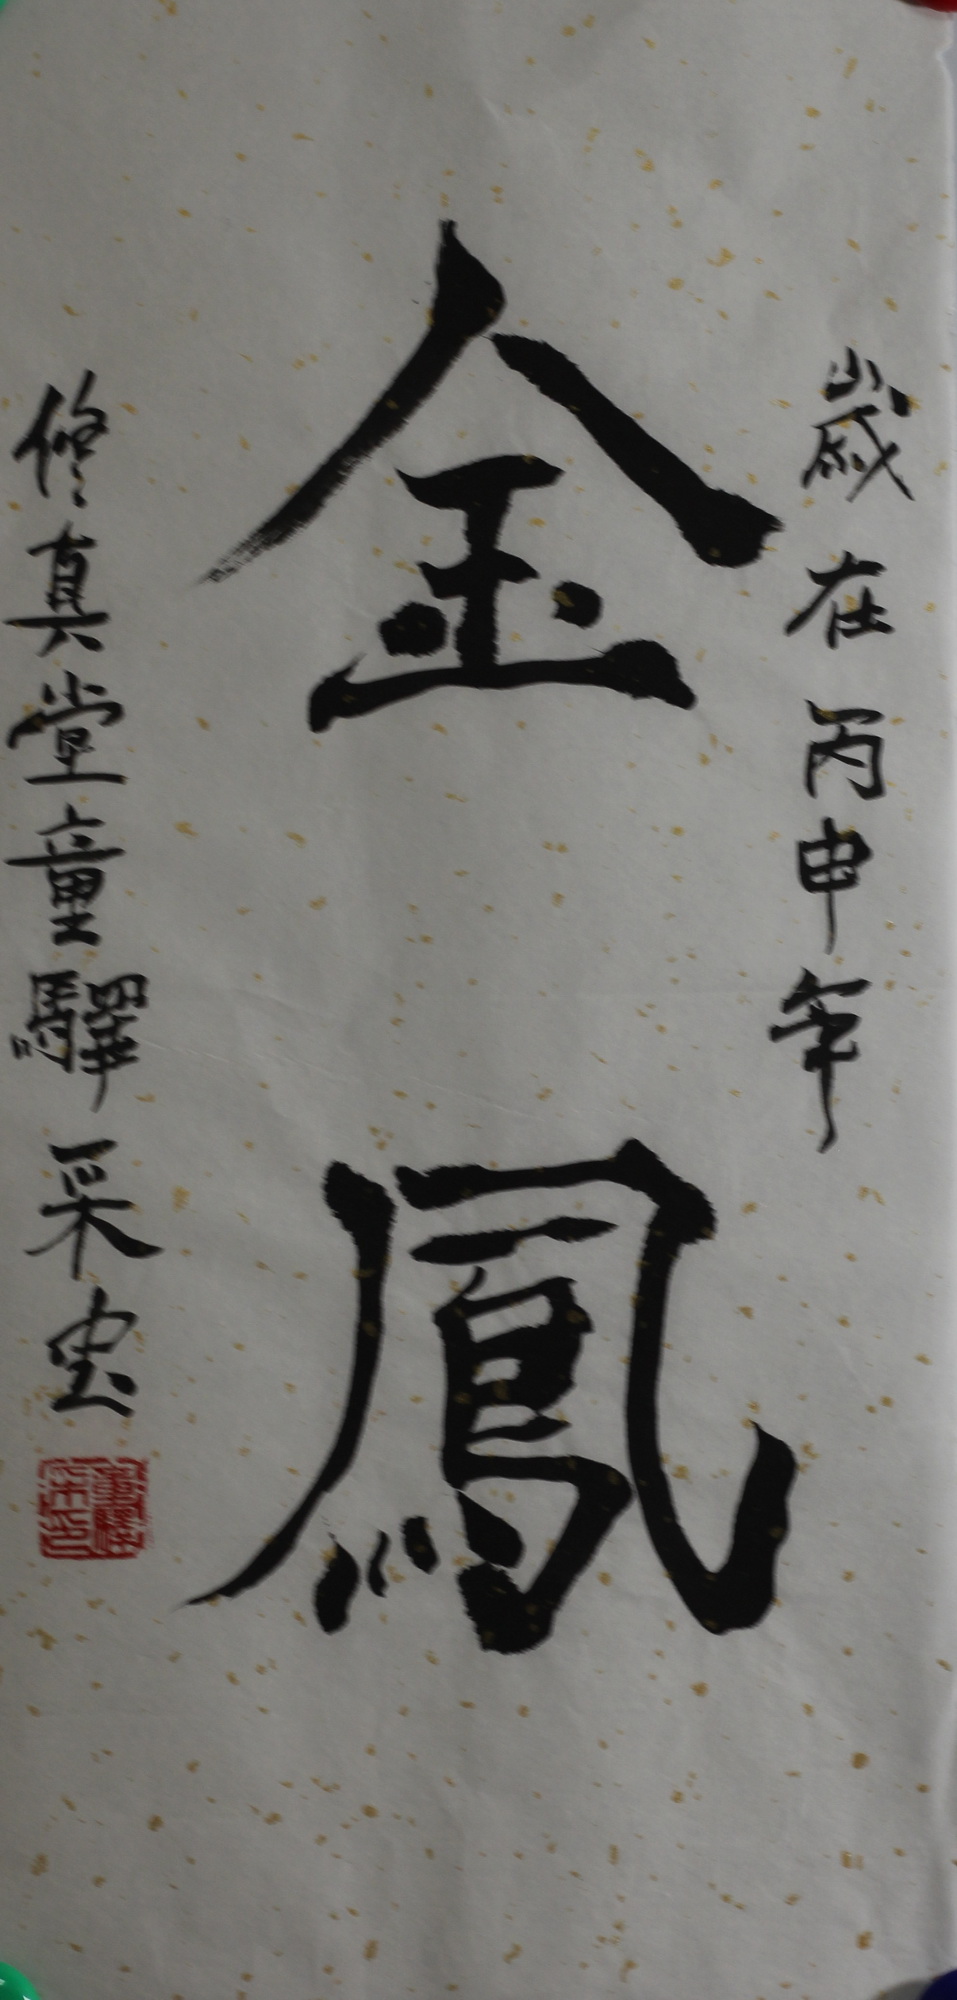 歲在丙申年
金鳳
修真堂童驛采